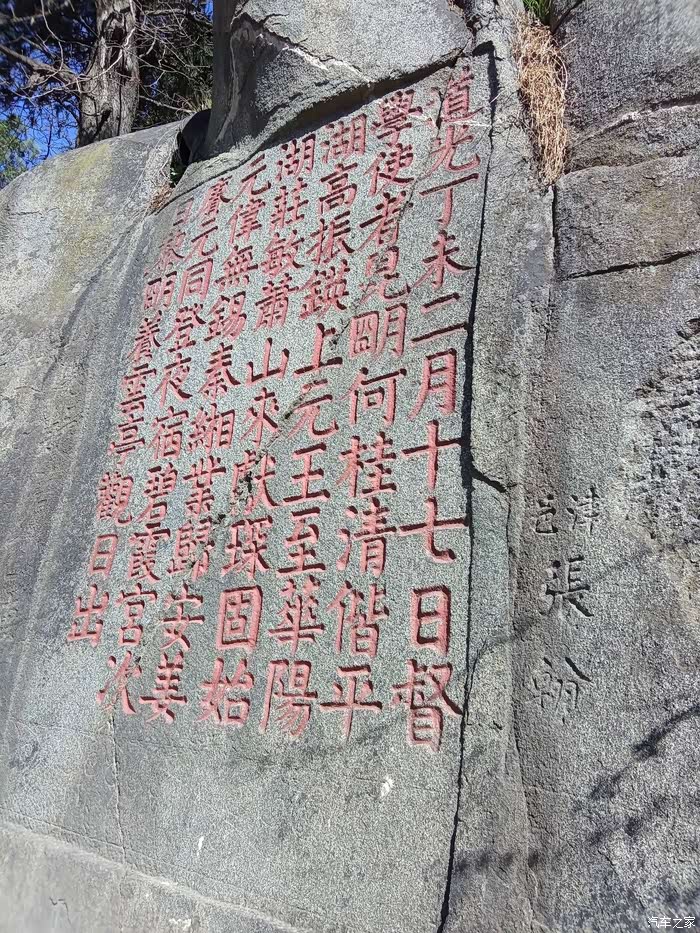 道光丁未二月十七日督
學使者昆明何桂清偕平
湖高振鍈上元王至華陽
湖莊敏蕭山來獻琛固始
元偉無錫秦緗業歸安姜
元同登夜宿碧霞宮次
日明養雲亭觀日出
津邑
張翰
汽车之家